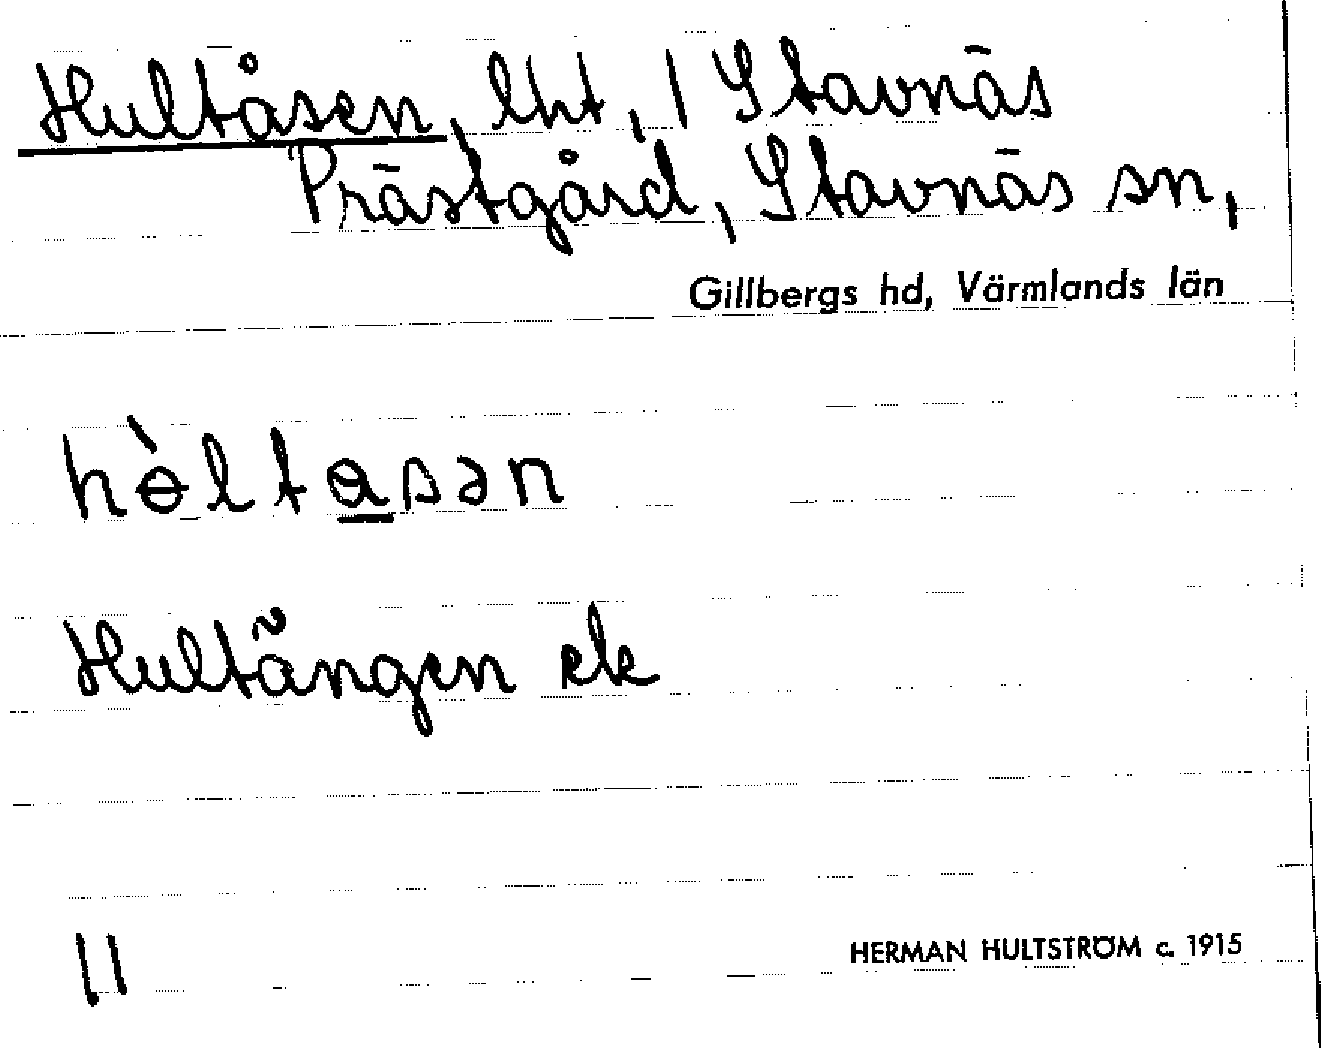 Hultåsen, lht, 1 Stavnäs
Prästgård, Stavnäs sn,
Gillbergs hd, Värmlands län
hɵ̀ltasən
Hultängen ek
11
HERMAN HULTSTRÖM c. 1915